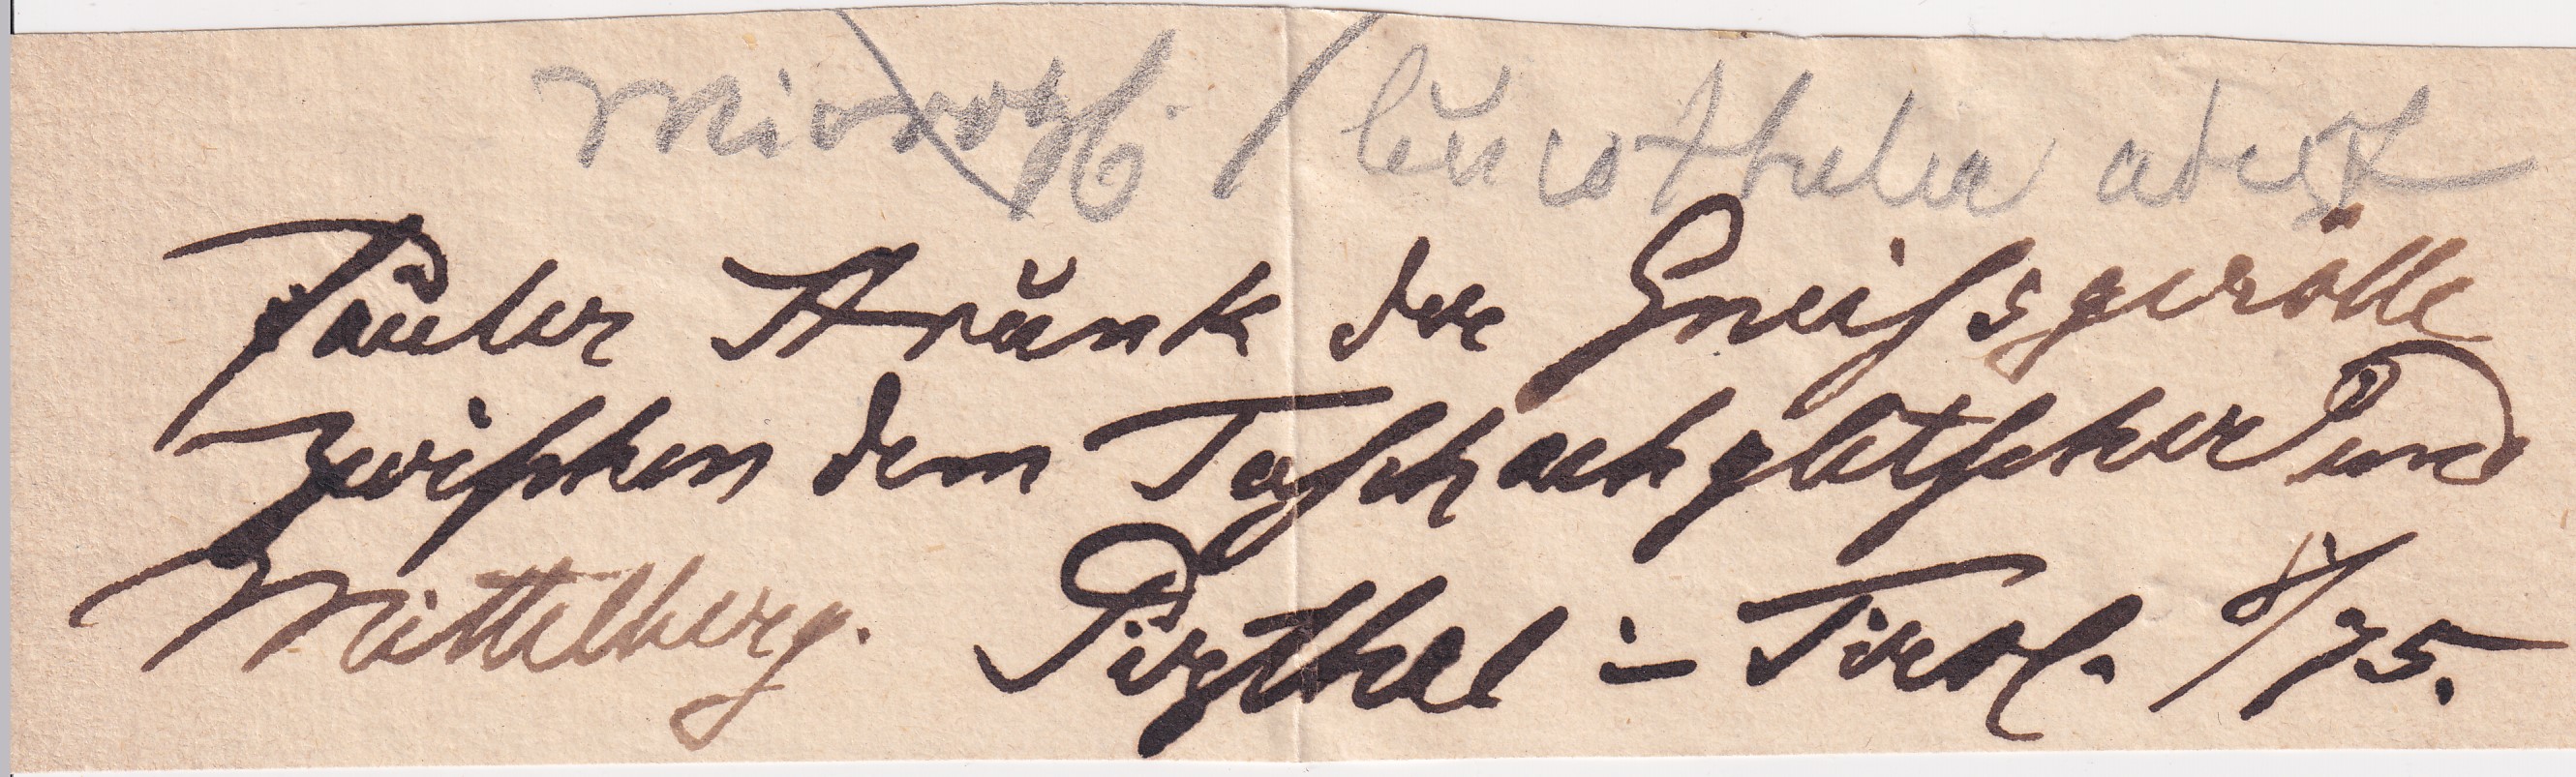 leucothalea adest
Fauler Strunk der Gneißgerölle
zwischen dem Taschachgletscher und
Mittelberg. Pizthal in Tirol. 8/75.